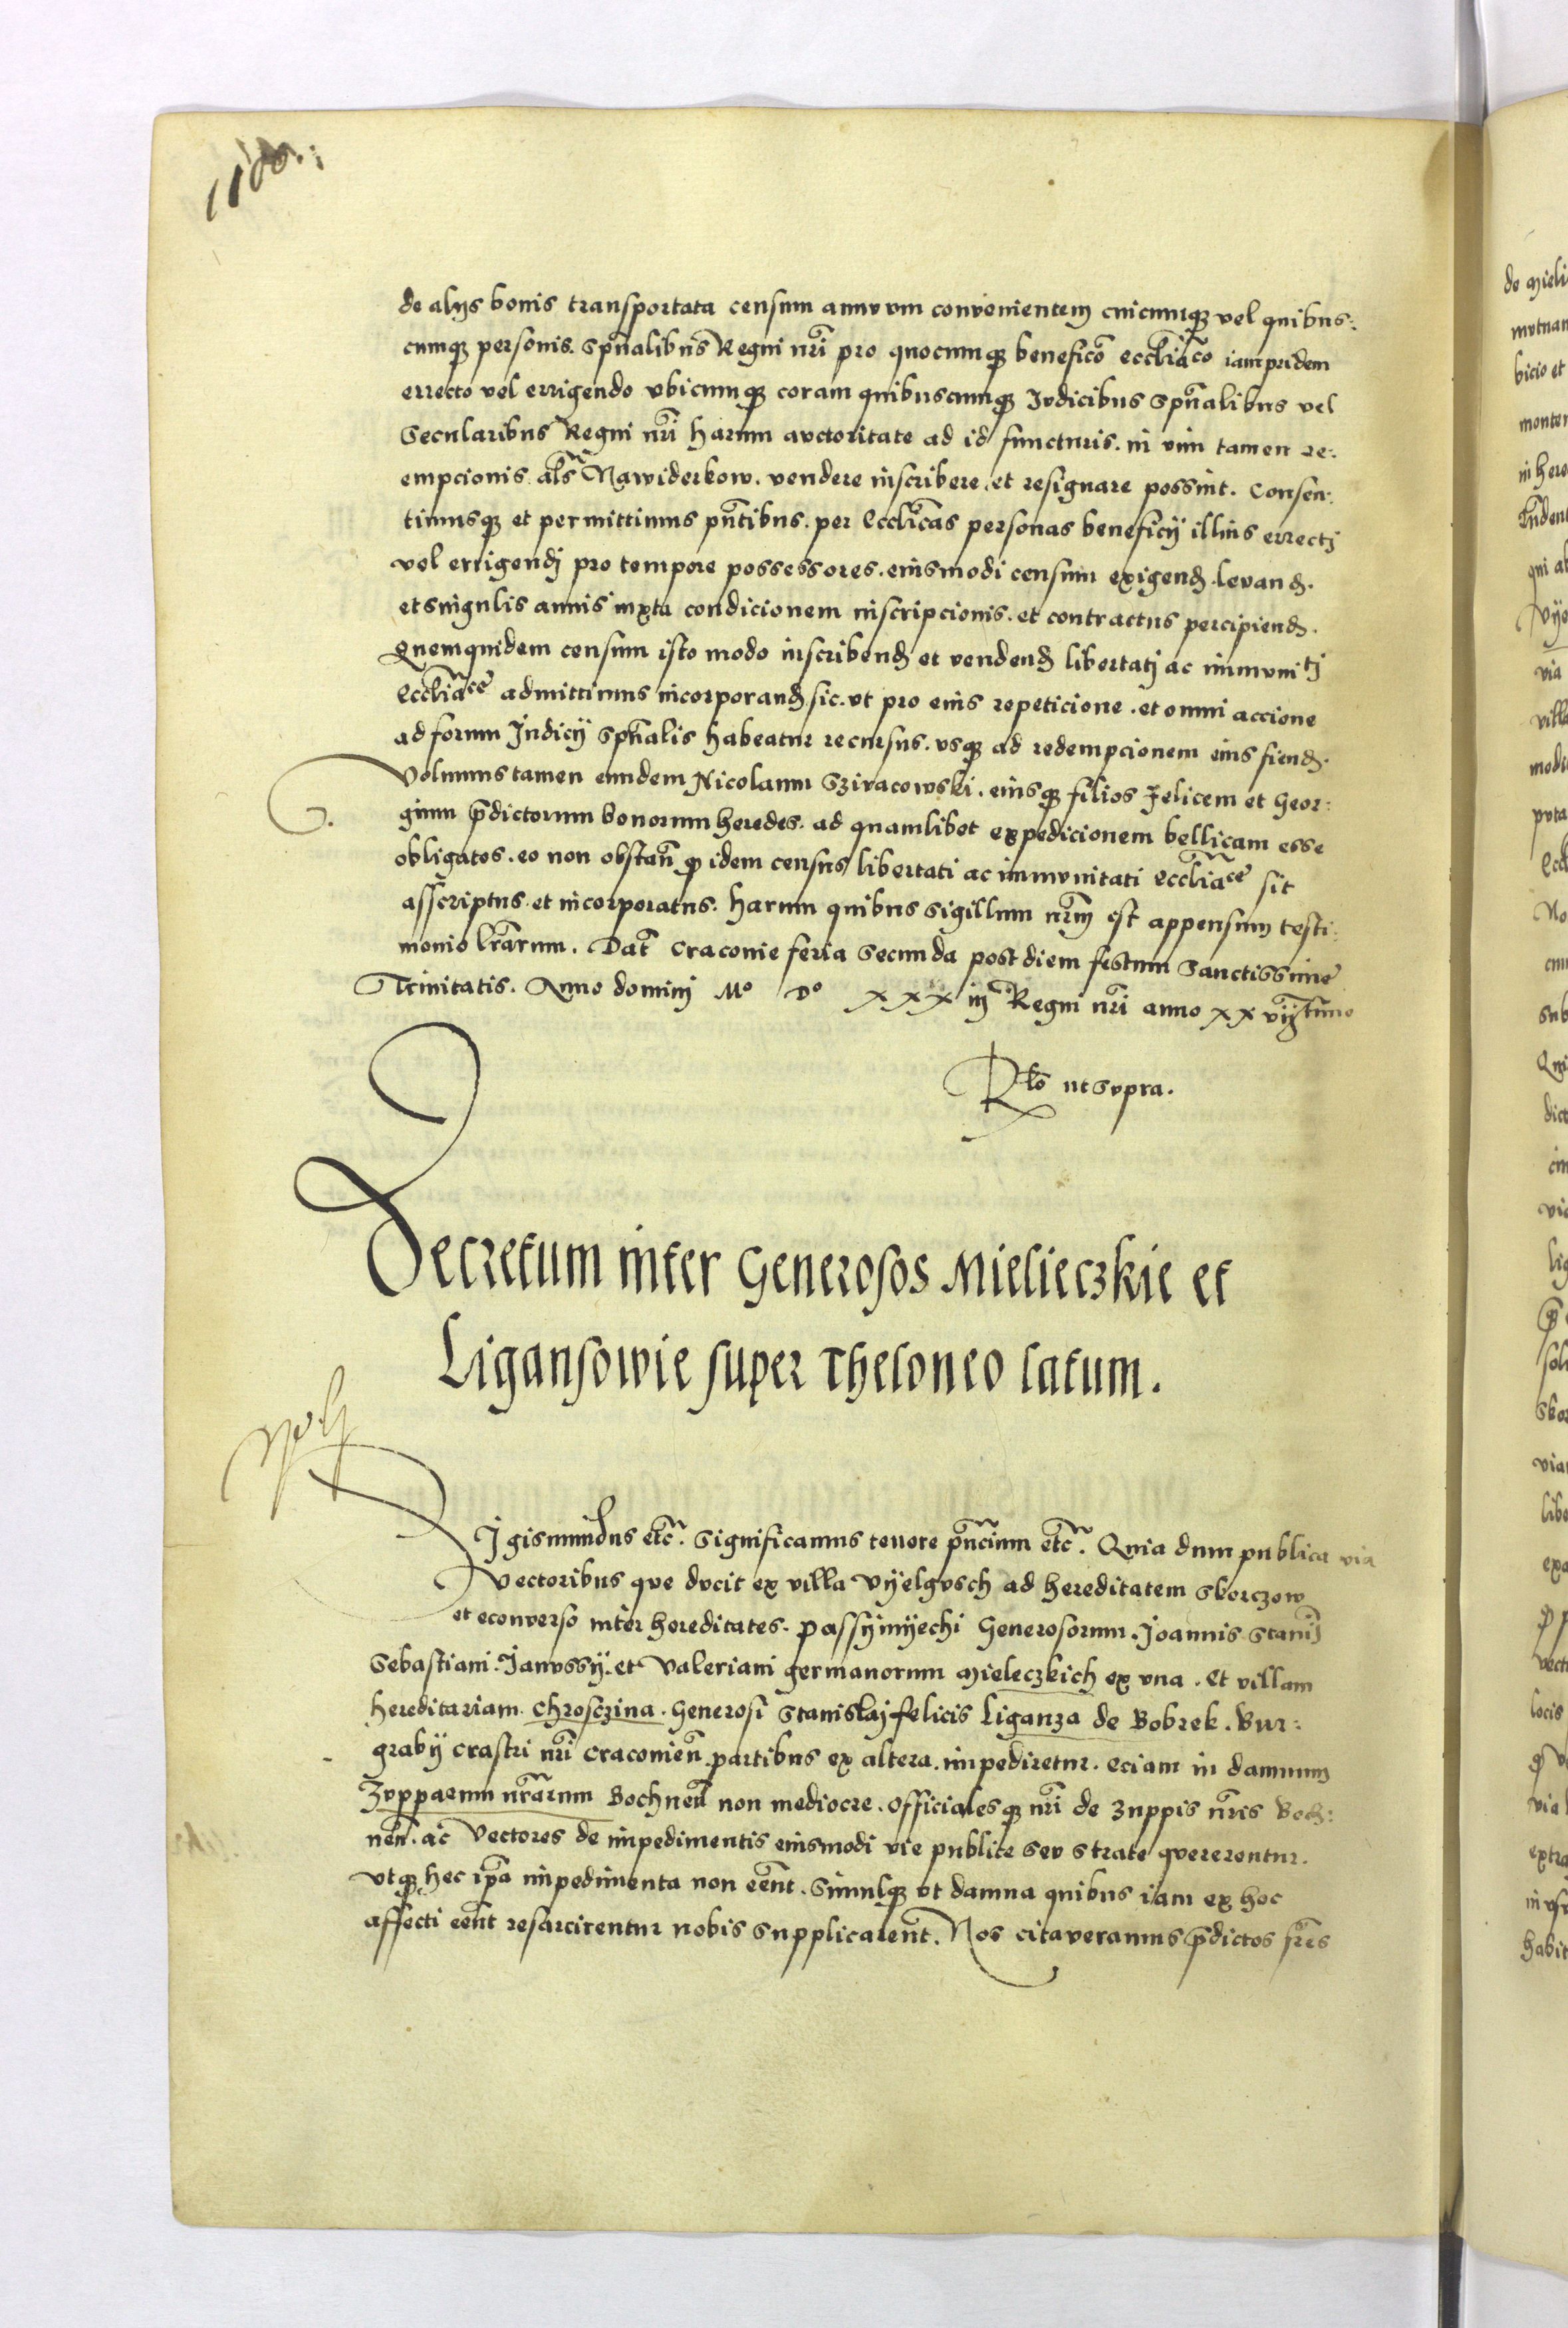 de alijs bonis transportata censum annuum convenientem cuicumq₃ vel quibus:
cumq₃ personis. spūalibus Regni nr̄i pro quocumq₃ beneficō eccliāco iampridem
errecto vel errigendo vbicumq₃ coram quibuscumq₃ Iudicibus spūalibus vel
Secularibus Regni nr̄i harum auctoritate ad id functuris. in vim tamen re:
empcionis al̄s Nawiderkow. vendere inscribere. et resignare possint. Consen:
timusq₃ et permittimus pn̄tibus. per Eccl̄icas personas beneficij illius errectj
vel errigendj pro tempore possessores. eiusmodi censum exigend. levand.
et singulis annis iuxta condicionem inscripcionis. et contractus percipiend.
Quemquidem censum isto modo inscribend et vendend libertatj ac immunitj
eccliāce admittimus incorporand. sic. vt pro eius repeticione. et omni accione
ad forum Judicij spūalis habeatur recursus. vsq₃ ad redempcionem eius fiend.
Volumus tamen eundem Nicolaum Szivacowski. eiusq₃ filios Felicem et Geor:
gium p̄dictorum bonorum heredes. ad quamlibet expedicionem bellicam esse
obligatos. eo non obstan̄ q̄ idem census libertati ac immunitati eccliāce sit
asscriptus. et incorporatus. harum quibus sigillum nr̄m est appensum testi:
monio lr̄arum. Dat̄ Cracovie feria secunda post diem festum Sanctissime
Trinitatis. Anno dominj Mº Dº XXX in Regni nr̄i anno XX vijtimo
Rlō ut supra.
Decretum inter Generosos Mielieczkie et
Ligansowie super Theloneo latum.
Sigismundus etc̄. Significamus tenore pn̄cium etc̄. Quia dum publica via
Vectoribus que ducit ex villa Vyelgvsch ad hereditatem Skorczow
et econverso inter hereditates. passymyechi Generosorum. Joannis Stanij
Sebastiani. Janussij. et Valeriani germanorum Mieleczkich ex vna. Et villam
hereditariam. Chrosczina. Generosi Stanislaj felicis Liganza de Bobrek. Bur:
grabij Crastri nr̄i Cracovien̄. partibus ex altera. impediretur. eciam in damnum
Zupparum nr̄arum Bochnen̄ non mediocre. officialesq₃ nr̄i de zuppis nr̄is Boch:
nen̄. ac Vectores de impedimentis eiusmodi vie publice seu strate quererentur.
vtq₃ hec ip̄a impedimenta non eēnt. simulq₃ vt damna quibus iam ex hoc
affecti eēnt resarcirentur nobis supplicarent. Nos citaveramus p̄dictos fr̄es